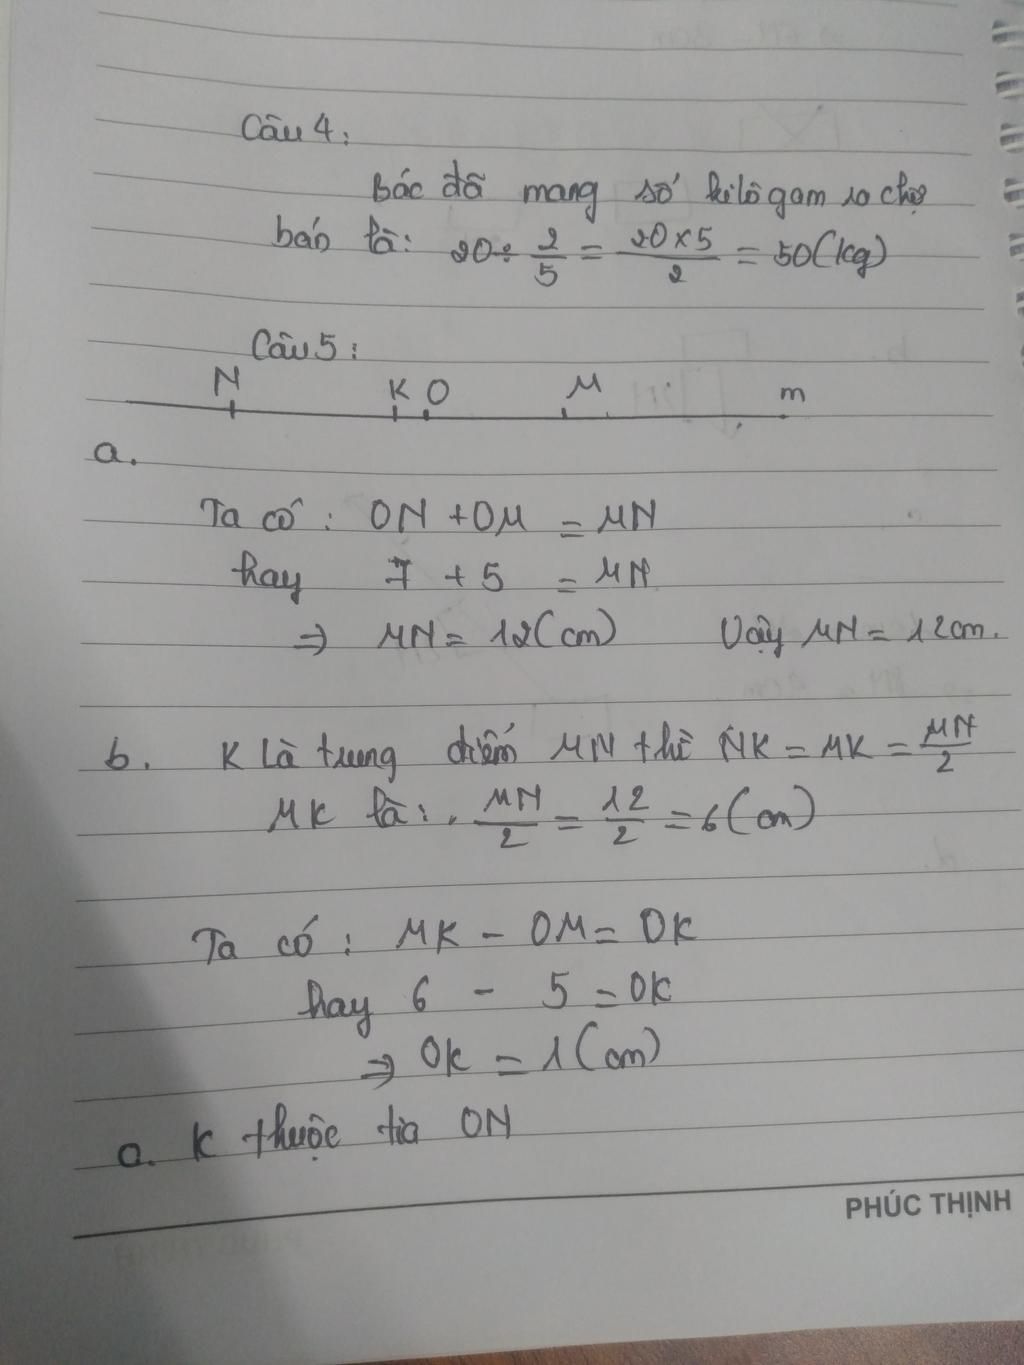 Câu 4:
Bác đã mang số kilôgam ra chợ
bán là: 20 ÷ 2/5 = 20×5/2 = 50 (kg)
Câu 5:
N K O M m
a.
Ta có: ON + OM = MN
hay 7 + 5 = MN
⇒ MN = 12 (cm) Vậy MN = 12cm.
b. K là trung điểm MN thì NK = MK = MN/2
MK là: MN/2 = 12/2 = 6 (cm)
Ta có: MK - OM = OK
hay 6 - 5 = OK
⇒ OK = 1 (cm)
a. K thuộc tia ON
PHÚC THỊNH